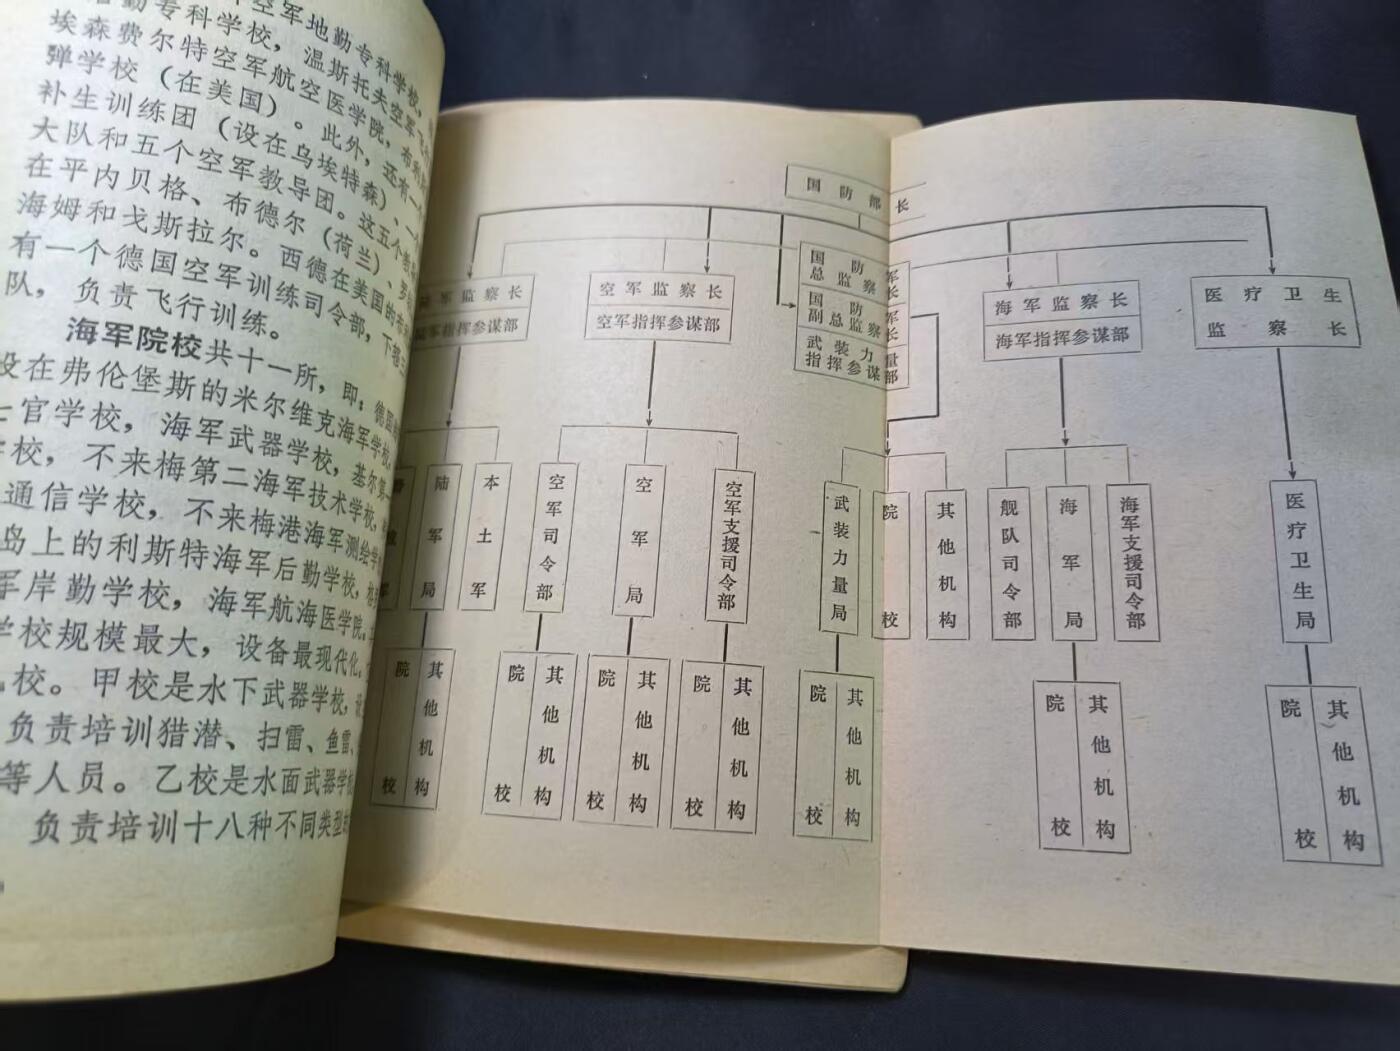 空军地勤专科学校，
勤专科学校，温斯托夫空军飞
埃森费尔特空军航空医学院，布利
弹学校（在美国）。此外，还有一个
补生训练团（设在乌埃特森）、一个
大队和五个空军教导团。这五个教
在平内贝格、布德尔（荷兰）、罗
海姆和戈斯拉尔。西德在美国的布
有一个德国空军训练司令部，下辖三
队，负责飞行训练。
海军院校共十一所，即：德国
设在弗伦堡斯的米尔维克海军学校，
士官学校，海军武器学校，基尔第一
学校，不来梅第二海军技术学校，
通信学校，不来梅港海军测绘学
岛上的利斯特海军后勤学校，
军岸勤学校，海军航海医学院。
学校规模最大，设备最现代化。
校。甲校是水下武器学校，
负责培训猎潜、扫雷、鱼雷、
等人员。乙校是水面武器学校
负责培训十八种不同类型
国防部长
军监察长
军指挥参谋部
空军监察长
空军指挥参谋部
国防军
总监察长
国防军
副总监察长
武装力量
指挥参谋部
海军监察长
海军指挥参谋部
医疗卫生
监察长
陆军局
本土军
空军司令部
空军局
空军支援司令部
武装力量局
院校
其他机构
舰队司令部
海军局
海军支援司令部
医疗卫生局
院校
其他机构
院校
其他机构
院校
其他机构
院校
其他机构
院校
其他机构
院校
其他机构
院校
其他机构